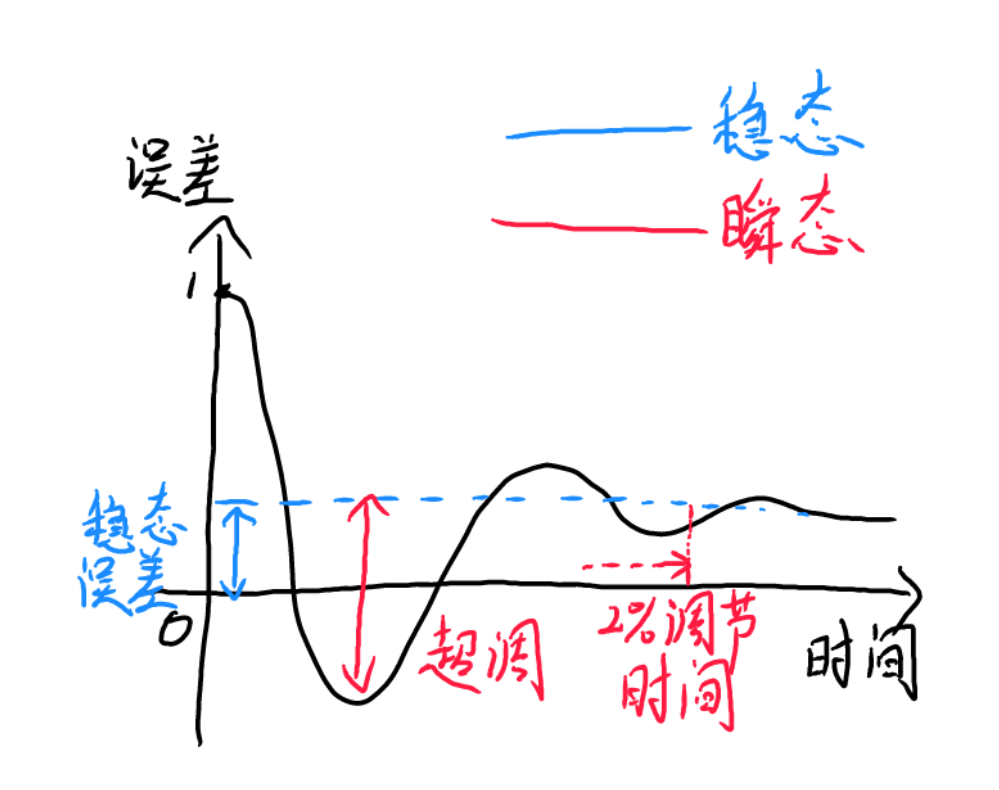 稳态
误差
瞬态
1
稳态
误差
0
超调
2%调节
时间
时间